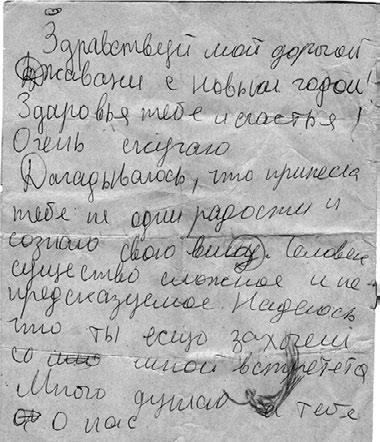 Здравствуй мой дорогой
Джавани с новым годом!
Здоровья тебе и счастья!
Очень скучаю
Догадывалось, что принесла
тебе не одни радости и
сознаю свою вину. Человек
существо сложное и не-
предсказуемое. Надеюсь
что ты ещё захочеш
со мной встретета
Много думаю о тебе
О нас